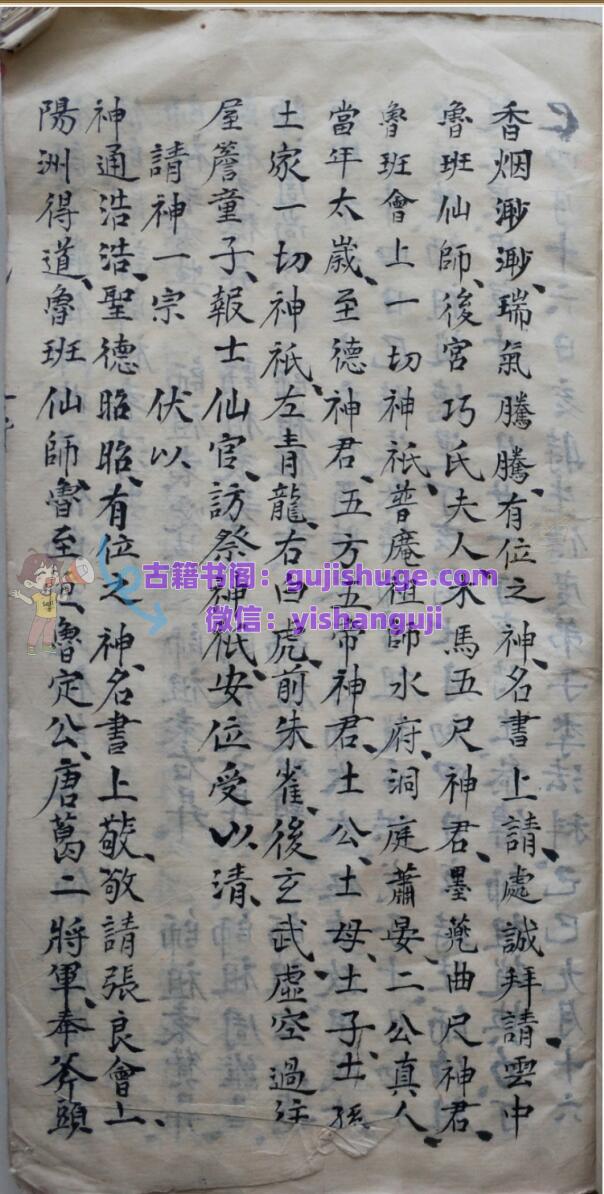 香烟渺渺、瑞氣騰騰、有位之神、名書上請、處誠拜請、雲中
魯班仙師、後宮巧氏夫人、木馬五尺神君、墨斗曲尺神君、
魯班會上一切神祇、普庵祖師、水府、洞庭蕭晏二公真人、
當年太歲、至德神君、五方五帝神君、土公、土母、土子、土孫
土家一切神祇、左青龍、右白虎、前朱雀、後玄武、虛空過往
屋簷童子、報士仙官、訪祭神祇、安位受以清、
請神一宗 伏以
神通浩浩、聖德昭昭、有位之神、名書上敬、敬請張良會上、
陽洲得道、魯班仙師、魯至祖、魯定公、唐葛二將軍、奉斧頭
古籍书阁：gujishuge.com
微信：yishanguji